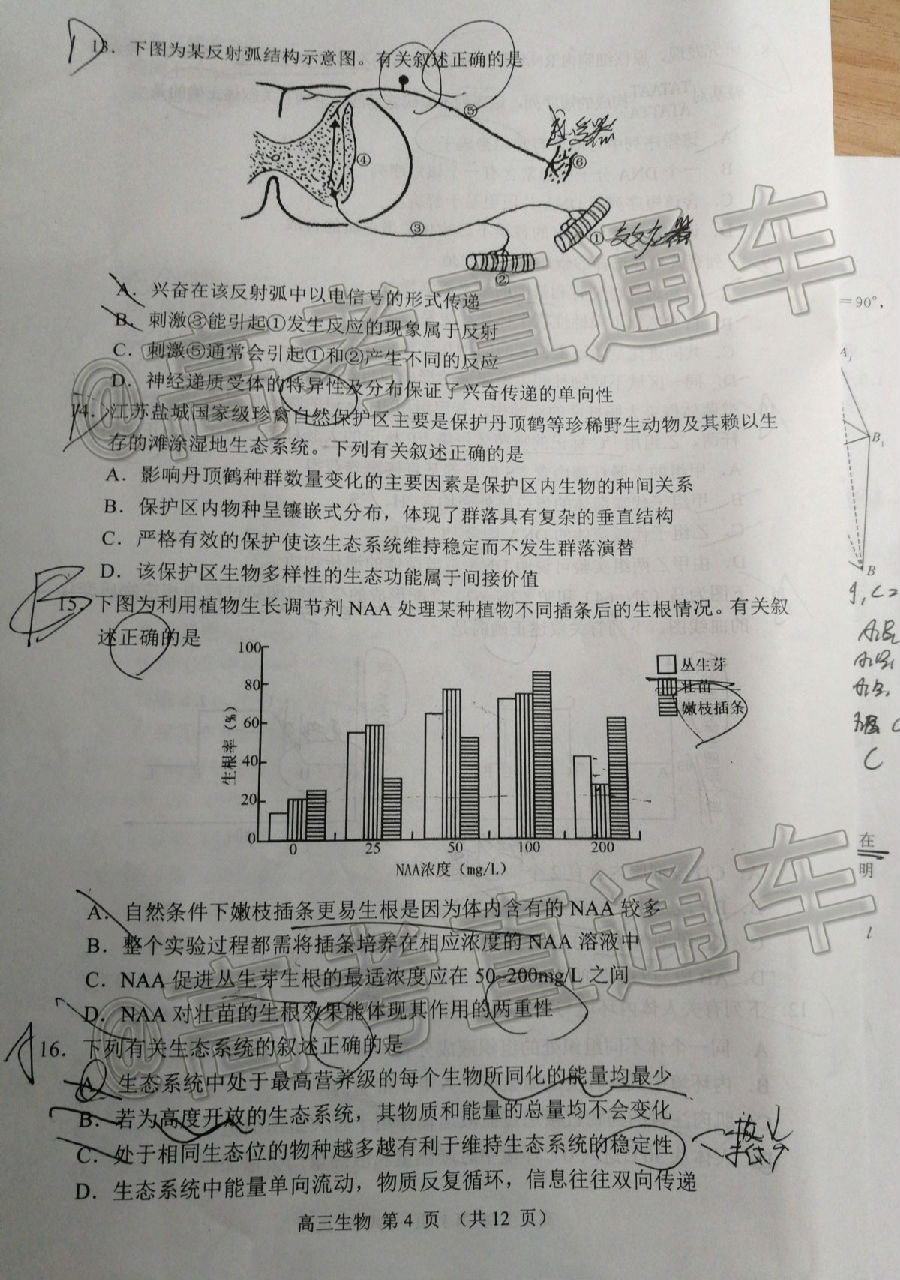 13．下图为某反射弧结构示意图。有关叙述正确的是
⑤
感受器
④
⑥
③
①
效应器
②
A．兴奋在该反射弧中以电信号的形式传递
B．刺激③能引起①发生反应的现象属于反射
C．刺激⑤通常会引起①和②产生不同的反应
D．神经递质受体的特异性及分布保证了兴奋传递的单向性
14．江苏盐城国家级珍禽自然保护区主要是保护丹顶鹤等珍稀野生动物及其赖以生
存的滩涂湿地生态系统。下列有关叙述正确的是
A．影响丹顶鹤种群数量变化的主要因素是保护区内生物的种间关系
B．保护区内物种呈镶嵌式分布，体现了群落具有复杂的垂直结构
C．严格有效的保护使该生态系统维持稳定而不发生群落演替
D．该保护区生物多样性的生态功能属于间接价值
B
15．下图为利用植物生长调节剂 NAA 处理某种植物不同插条后的生根情况。有关叙
述正确的是
生根率（%）
100
80
60
40
20
0
丛生芽
壮苗
嫩枝插条
0 25 50 100 200
NAA浓度（mg/L）
A．自然条件下嫩枝插条更易生根是因为体内含有的 NAA 较多
B．整个实验过程都需将插条培养在相应浓度的 NAA 溶液中
C．NAA 促进丛生芽生根的最适浓度应在 50~200mg/L 之间
D．NAA 对壮苗的生根效果能体现其作用的两重性
A
16．下列有关生态系统的叙述正确的是
A．生态系统中处于最高营养级的每个生物所同化的能量均最少
B．若为高度开放的生态系统，其物质和能量的总量均不会变化
C．处于相同生态位的物种越多越有利于维持生态系统的稳定性
D．生态系统中能量单向流动，物质反复循环，信息往往双向传递
高三生物 第 4 页 （共 12 页）
@高考直通车
@高考直通车
=90°，
A₁
B₁
B
C
在
明